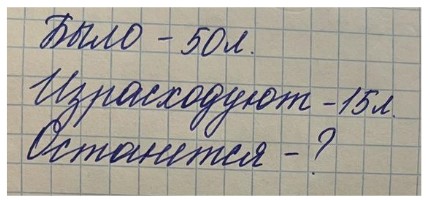 Было - 50л.
Израсходуют - 15л.
Останется - ?